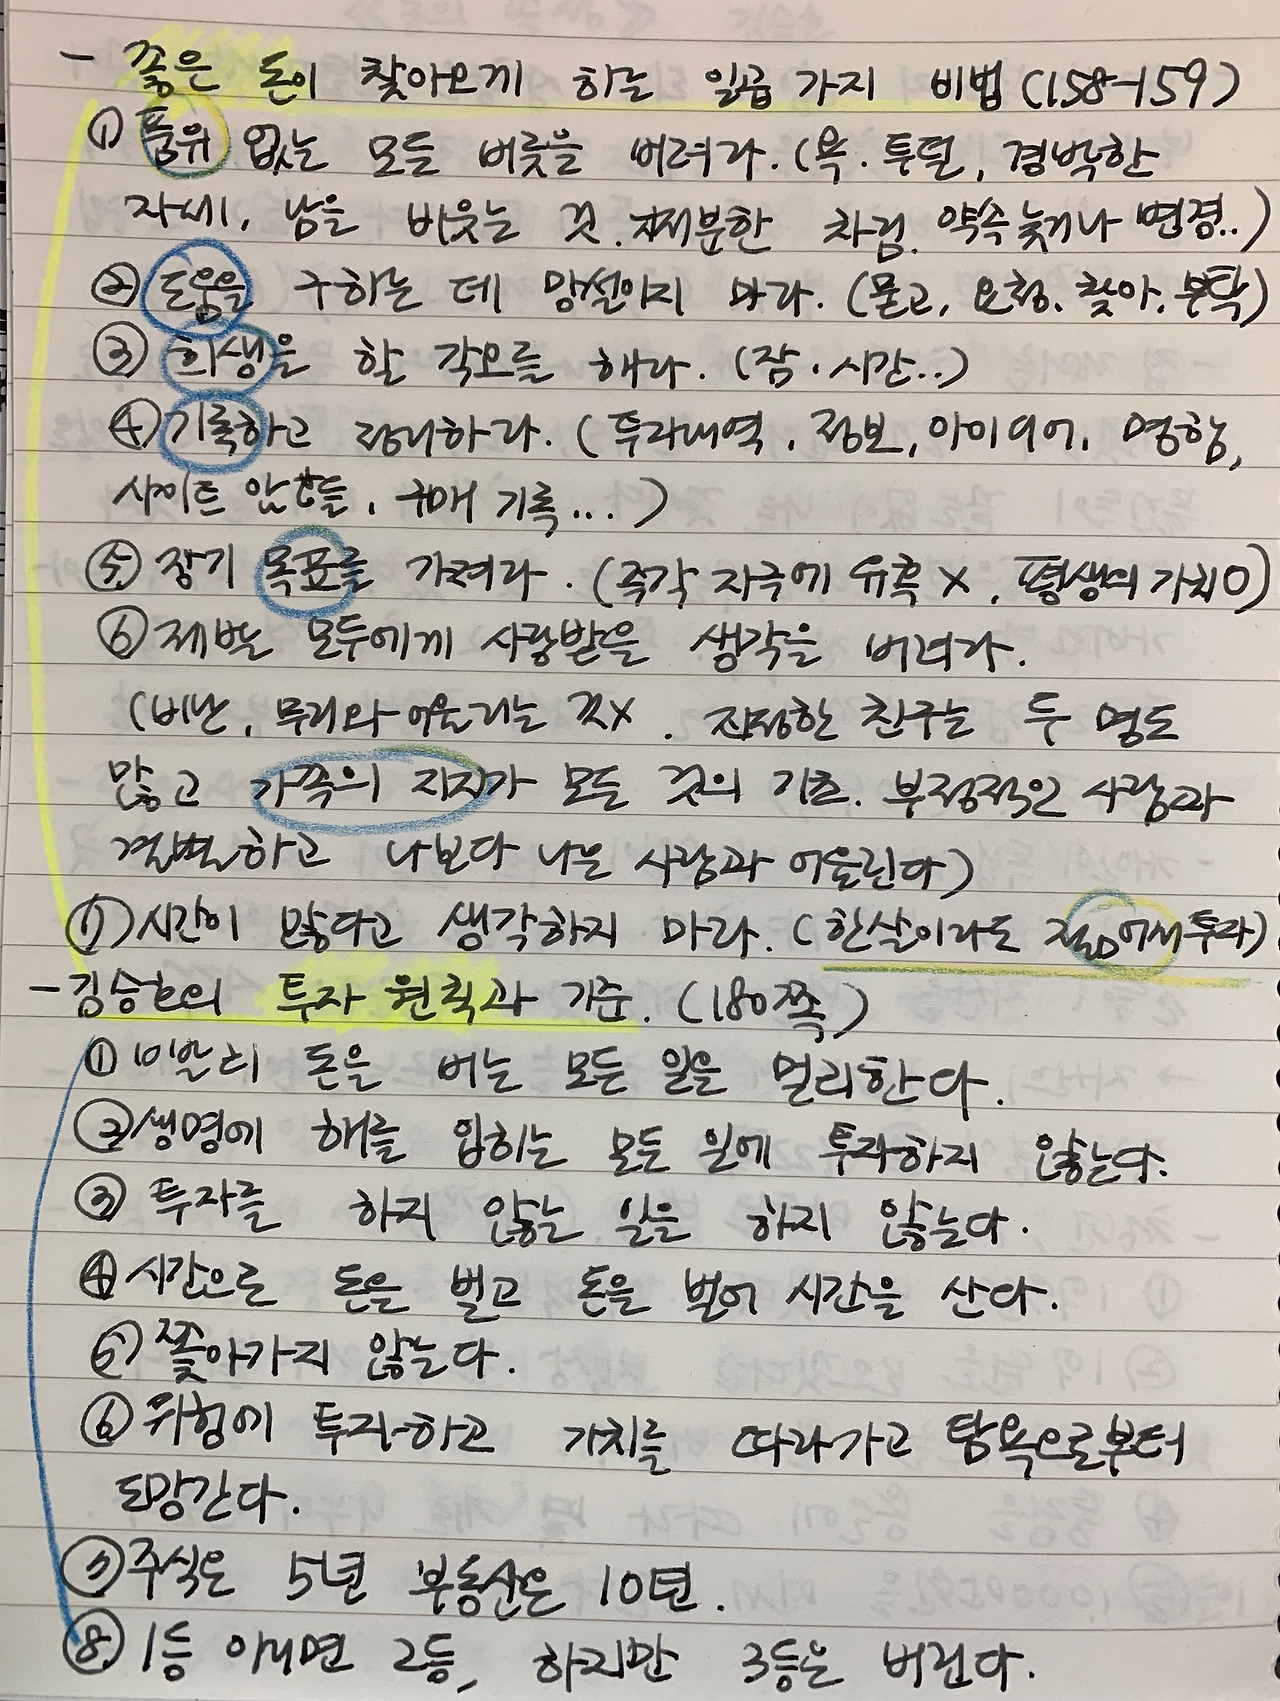 - 좋은 돈이 찾아오게 하는 일곱 가지 비법 (158-159)
① 품위 없는 모든 버릇을 버려라. (욕. 투덜, 경박한
자세, 남을 비웃는 것. 찌분한 차림. 약속 늦거나 변경..)
② 도움을 구하는 데 망설이지 마라. (묻고, 요청. 찾아. 부탁)
③ 희생을 할 각오를 해라. (잠. 시간..)
④ 기록하고 정리하라. (투자내역, 정보, 아이디어, 명함,
사이트 암호들, 구매 기록...)
⑤ 장기 목표를 가져라. (즉각 자극에 유혹 X, 평생의 가치 O)
⑥ 제발 모두에게 사랑받을 생각을 버려라.
(비난, 무리와 어울리는 것X. 진정한 친구는 두 명도
많고 가족의 지지가 모든 것의 기초. 부정적인 사람과
결별하고 나보다 나은 사람과 어울린다)
⑦ 시간이 많다고 생각하지 마라. (한살이라도 젊어서 투자)
- 김승호의 투자 원칙과 기준. (180쪽)
① 빨리 돈을 버는 모든 일을 멀리한다.
② 생명에 해를 입히는 모든 일에 투자하지 않는다.
③ 투자를 하지 않는 일을 하지 않는다.
④ 시간으로 돈을 벌고 돈을 벌어 시간을 산다.
⑤ 쫓아가지 않는다.
⑥ 위험에 투자하고 가치를 따라가고 탐욕으로부터
도망간다.
⑦ 주식은 5년 부동산은 10년.
⑧ 1등 아니면 2등, 하지만 3등은 버린다.